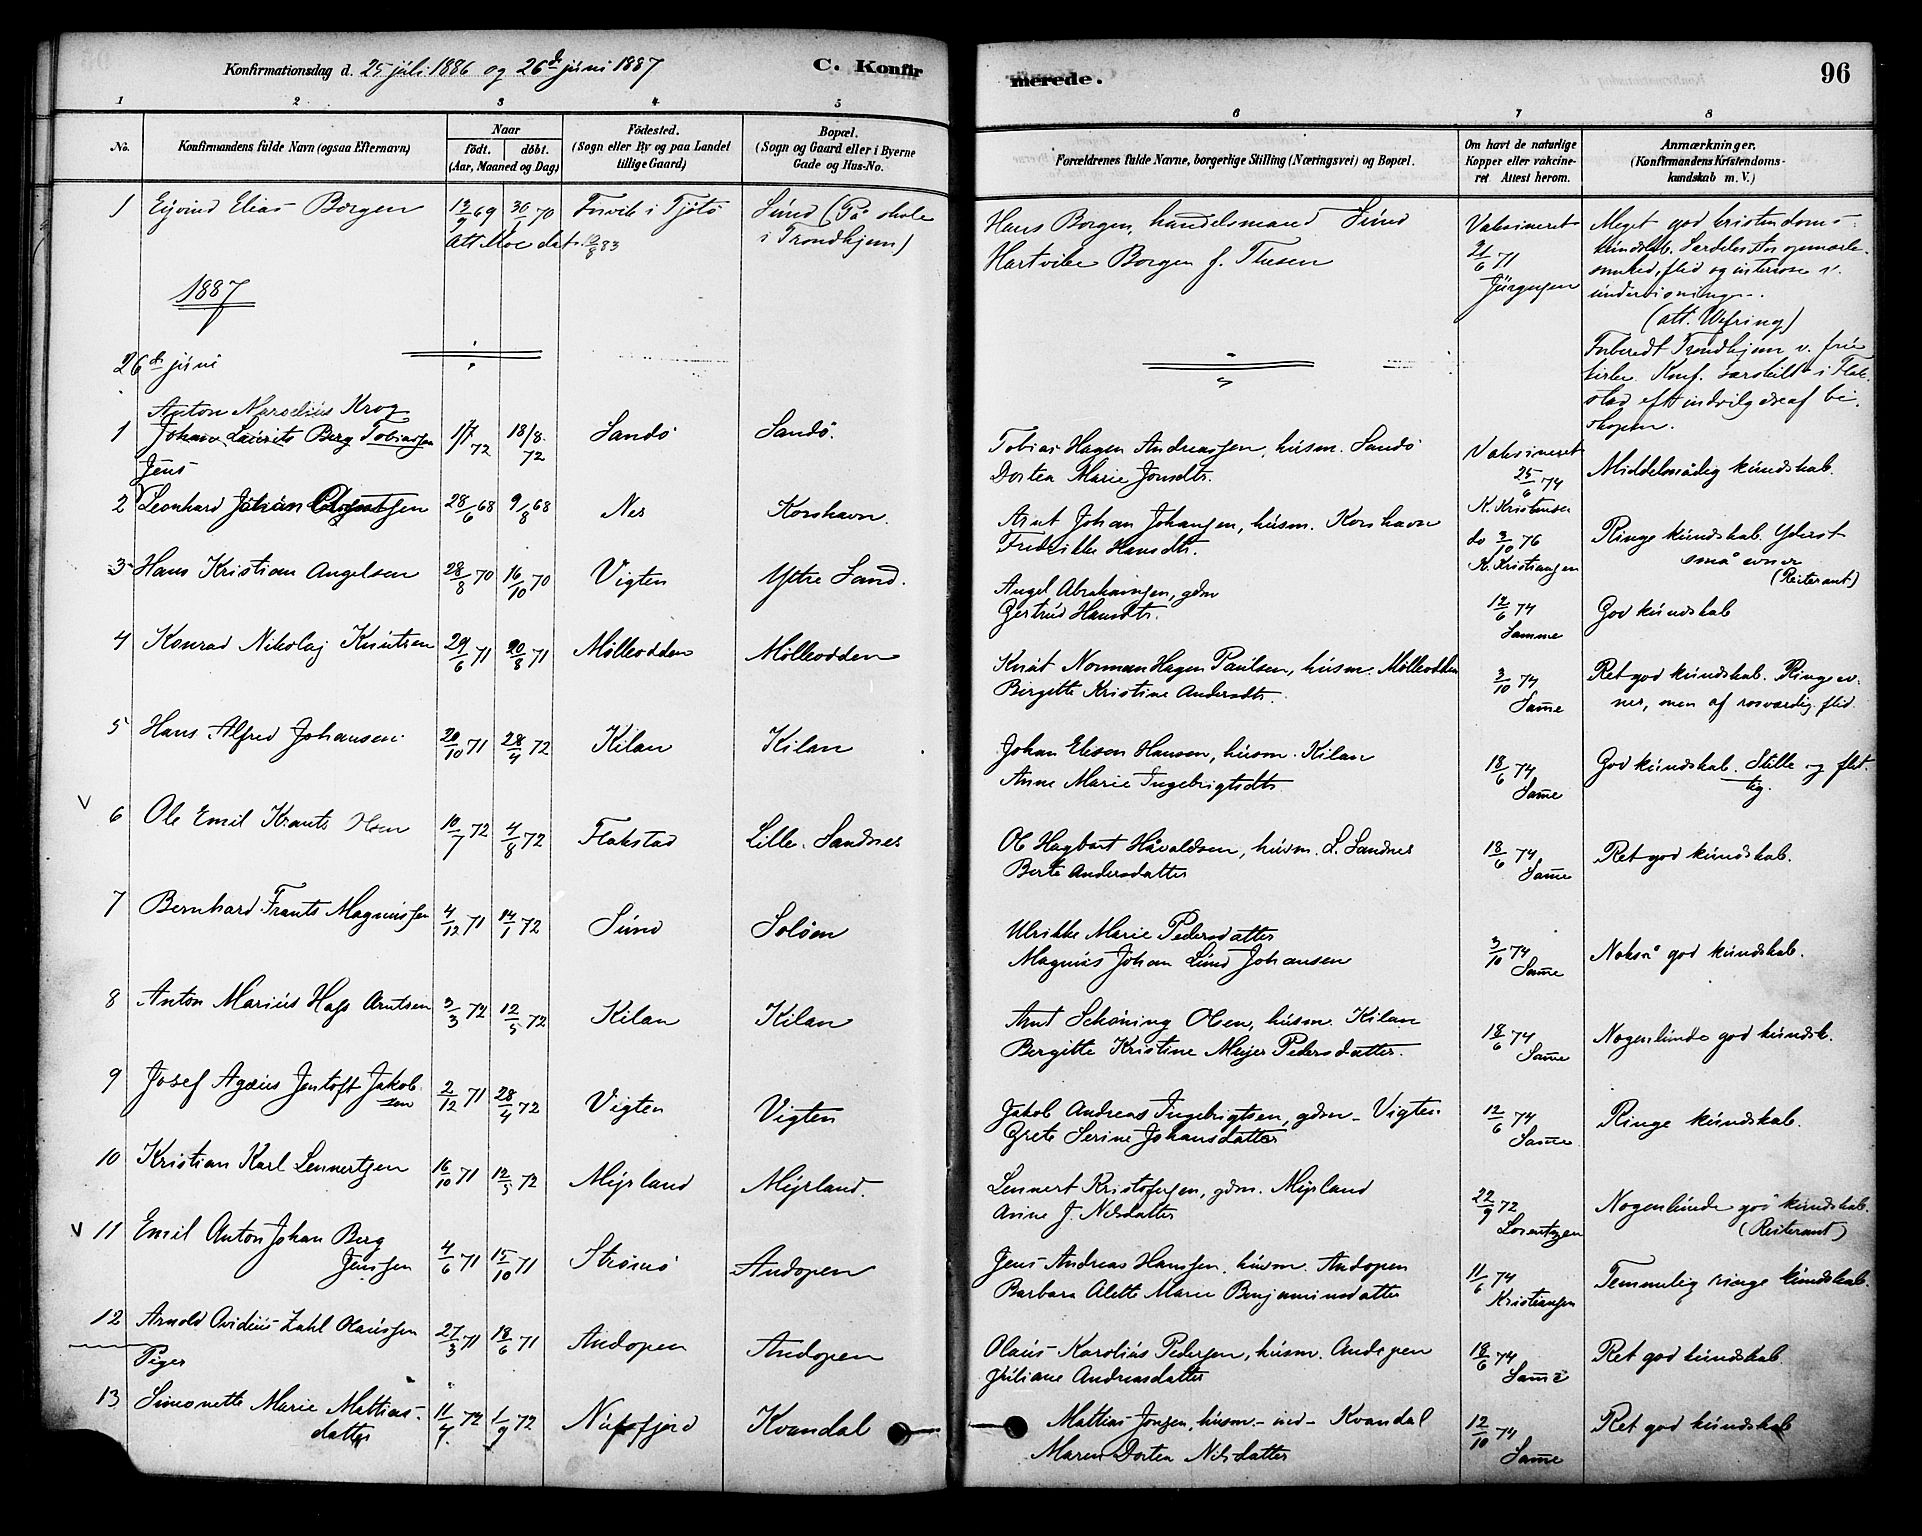 Konfirmationsdag d. 25 juli 1886 og 26de juni 1887
C. Konfir
merede.
96
1 2 3 4 5 6 7 8
No.
Konfirmandens fulde Navn (ogsaa Efternavn)
Naar
födt. döbt.
(Aar, Maaned og Dag)
Födested.
(Sogn eller By og paa Landet
tillige Gaard)
Bopæl.
(Sogn og Gaard eller i Byerne
Gade og Hus-No.
Forældrenes fulde Navne, borgerlige Stilling (Næringsvei) og Bopæl.
Om havt de naturlige
Kopper eller vakcine-
ret Attest herom.
Anmærkninger.
(Konfirmandens Kristendoms-
kundskab m. V.)
1 Ejvind Elias Borgen 13/9 69 30/1 70 Forvik i Tjötö Sund (På skole
i Trondhjem)
Att. Moe dat. 83
Hans Borgen, handelsmand Sund
Hartvike Borgen f. Thesen
Vaksineret
21/6 71
Jürgensen
Meget god kristendoms-
kundskab. Særdeles stor opmærk-
somhed, flid og interesse v.
undervisningen.
(att. Wefring)
Forberedt Trondhjem v. frue
kirke. Konf. særskilt i Flak-
stad eft. indvilgelse af bi-
skopen.
1887
26de juni
1 Anton Marselius Krog
Johan Laurits Berg Tobiassen 1/7 72 18/8 72 Sandö Sandö.
Tobias Hagen Andreassen, husm. Sandö
Dortea Marie Jonsdtr.
Vaksineret
25/6 74
K. Kristensen
Middelmådig kundskab.
Jens
2 Leonhard Johan 28/6 68 9/8 68 Nes Korshavn.
Arnt Johan Johansen, husm. Korshavn
Fredrikke Hansdtr.
do 3/10 76
K. Kristiansen
Ringe kundskab. Yderst
små evner
(Reiterant)
3 Hans Kristian Angelsen 28/8 70 16/10 70 Vigten Yttre Sand.
Angel Abrahamsen, gdm
Gertrud Hansdtr.
12/6 74
Samme
God kundskab
4 Konrad Nikolaj Knutsen 29/6 71 20/8 71 Mölleodden Mölleodden
Knut Norman Hagen Paulsen, husm. Mölleodden
Birgitte Kristine Andersdtr.
3/10 74
Same
Ret god kundskab. Ringe ev-
ner, men af rosværdig flid.
5 Hans Alfred Johansen. 20/10 71 28/4 72 Kilan Kilan
Johan Elisen Hansen, husm. Kilan
Anne Marie Ingebrigtsdtr.
18/6 74
Same
God kundskab. Stille og flit-
tig.
V 6 Ole Emil Krants Olsen 10/7 72 4/8 72 Flakstad Lille Sandnes
Ole Hagbart Håvaldsen, husm. L. Sandnes
Berte Andersdatter
18/6 74
Same
Ret god kundskab.
7 Bernhard Frants Magnussen 4/12 71 14/1 72 Sund Solöen
Ulrikke Marie Pedersdatter
Magnus Johan Lund Johansen
3/10 74
Same
Nokså god kundskab.
8 Anton Marius Hass Arntsen 3/3 72 12/5 72 Kilan Kilan
Arnt Schöning Olsen, husm. Kilan
Bergitte Kristine Mejer Pedersdatter.
18/6 74
Same
Nogenlunde god kundsk.
9 Josef Ageus Jentoft Jakob-
sen 2/12 71 28/4 72 Vigten Vigten
Jakob Andreas Ingebrigtsen, gdm. Vigten
Grete Serine Johansdatter
12/6 74
Same
Ringe kundskab.
10 Kristian Karl Lennertsen 16/10 71 12/5 72 Myrland Myrland.
Lennert Kristofersen, gdm. Myrland
Anne J. Nilsdatter
22/9 72
Lorentzen
Nogenlunde god kundskab.
(Reiterant)
V 11 Emil Anton Johan Berg
Jenssen 4/6 71 15/10 71 Strömö Andopen
Jens Andreas Hanssen, husm. Andopen
Barbara Alette Marie Benjaminsdatter
11/6 74
Kristiansen
Temmelig ringe kundskab.
12 Arnold Ovidius Zahl Olaussen 27/3 71 18/6 71 Andopen Andopen
Olaus Karolius Pedersen, husm. Andopen
Juliane Andreasdatter
18/6 74
Same
Ret god kundskab.
Piger
13 Simonette Marie Mattias-
datter 11/7 72 1/9 72 Nufsfjord Kvandal
Mattias Jonsen, husm. ind. Kvandal
Maren Dortea Nilsdatter
12/10 74
Same
Ret god kundskab